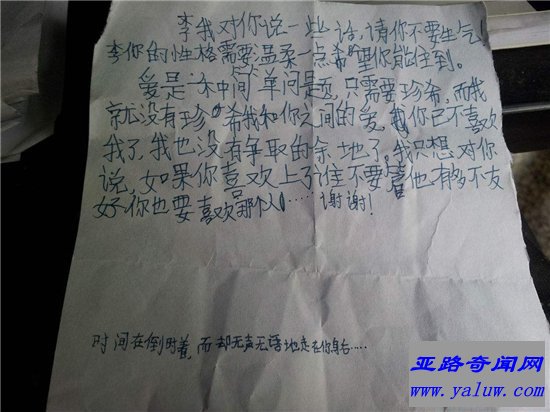 李我对你说一些话,请你不要生气
李你的性格需要温柔一点希望你能往到。
爱是一种简单问题,只需要珍希,而我
就没有珍希我和你之间的爱,你已不喜欢
我了,我也没有争取的余地了,我只想对你
说,如果你喜欢上了谁不要管他有多不友
好你也要喜欢那个人……谢谢!
时间在倒时着,而却无声无语地走在你身右……
亚路奇闻网
www.yaluw.com